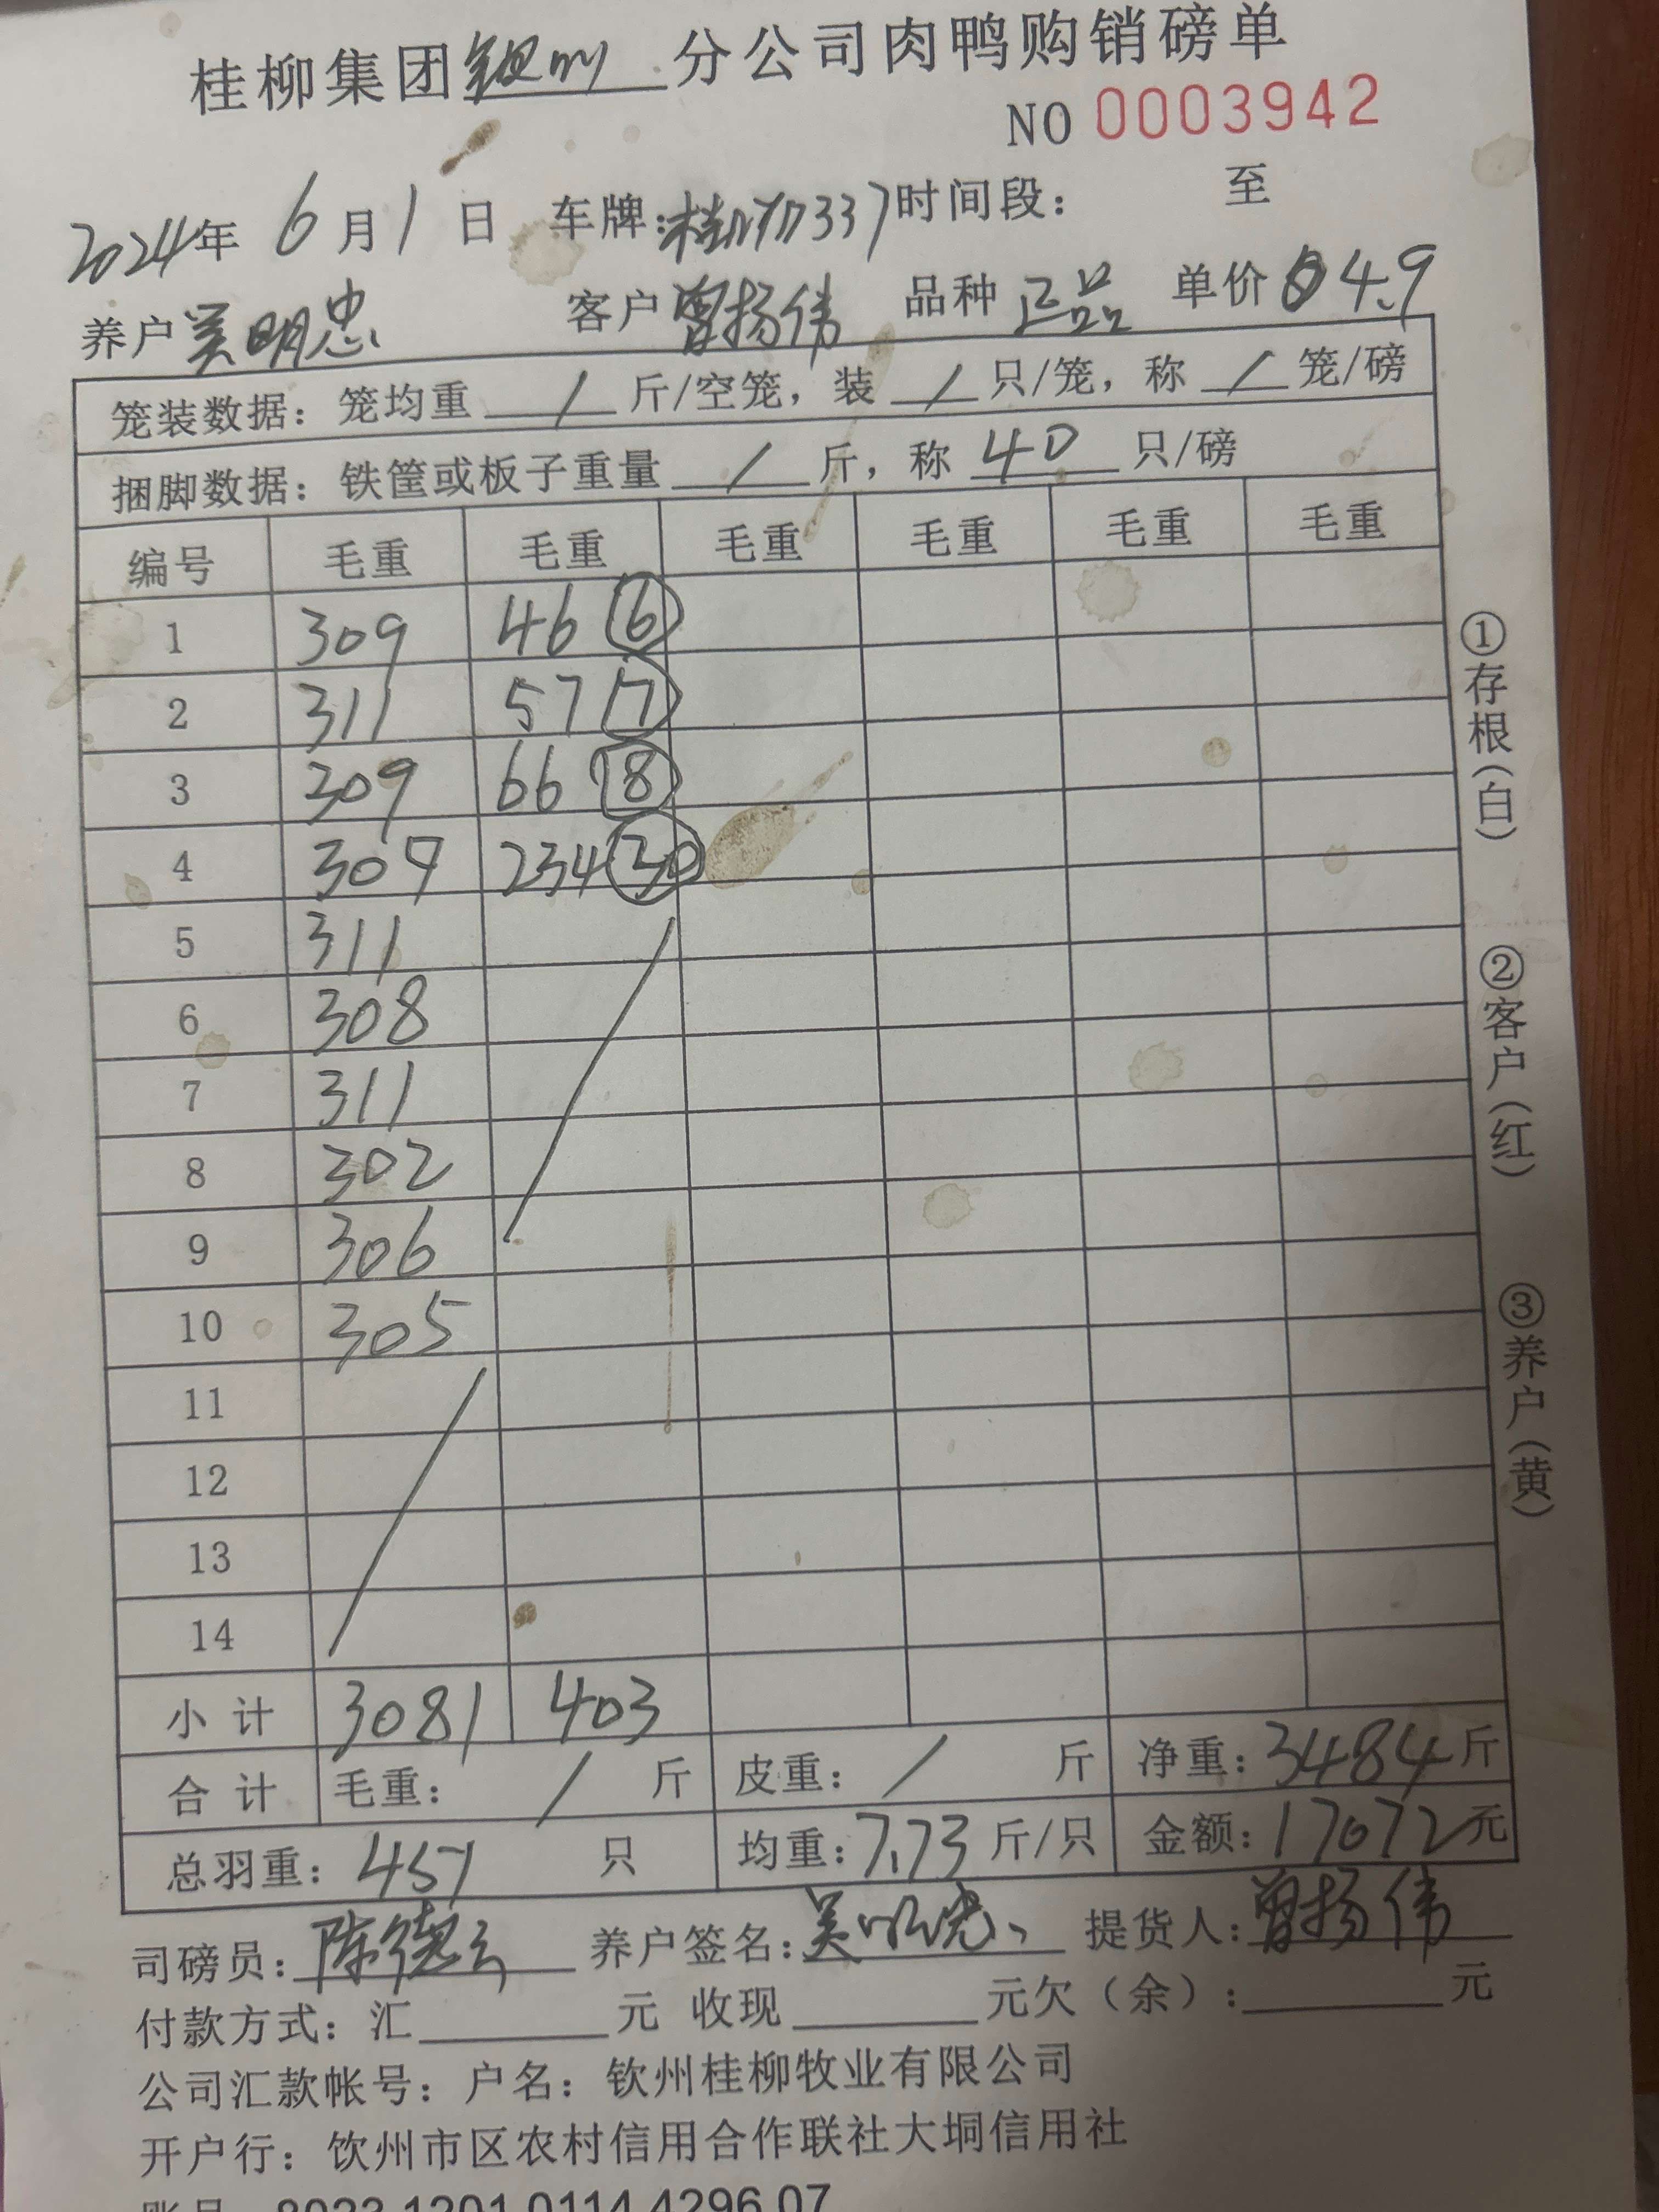 桂柳集团钦州分公司肉鸭购销磅单
NO 0003942
2024年 6月1日 车牌: 337 时间段: 至
养户 吴明忠 客户 曾扬伟 品种 正品 单价 4.9
笼装数据: 笼均重 / 斤/空笼, 装 / 只/笼, 称 / 笼/磅
捆脚数据: 铁筐或板子重量 / 斤, 称 40 只/磅
编号 毛重 毛重 毛重 毛重 毛重 毛重
1 309 46 ⑥
2 311 57 ⑦
3 309 66 ⑧
4 309 234 ㉚
5 311
6 308
7 311
8 302
9 306
10 305
11
12
13
14
小计 3081 403
合计 毛重: / 斤 皮重: / 斤 净重: 3484 斤
总羽重: 451 只 均重: 7.73 斤/只 金额: 17072 元
司磅员: 陈德云 养户签名: 吴明忠 提货人: 曾扬伟
付款方式: 汇 元 收现 元欠（余）: 元
公司汇款帐号: 户名: 钦州桂柳牧业有限公司
开户行: 饮州市区农村信用合作联社大垌信用社
账号 8023 1201 0114 4296 07
①存根(白)
②客户(红)
③养户(黄)